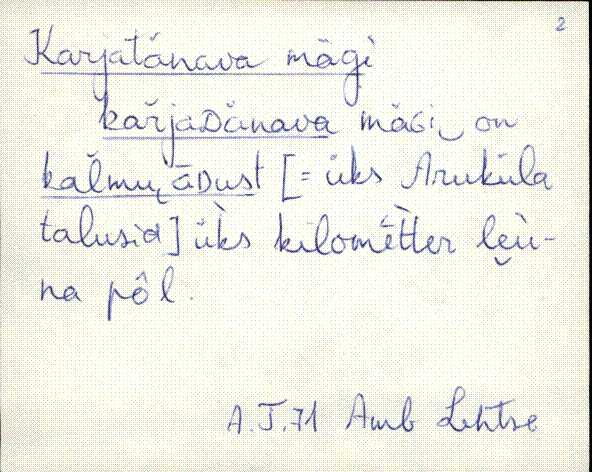 2
Karjatänava mägi
kařjaDänava mäGi‿on
kaľmu‿āDust [= üks Aruküla
talusid] üks kilomètter leu-
na pôl.
A.J.71 Amb Lehtse